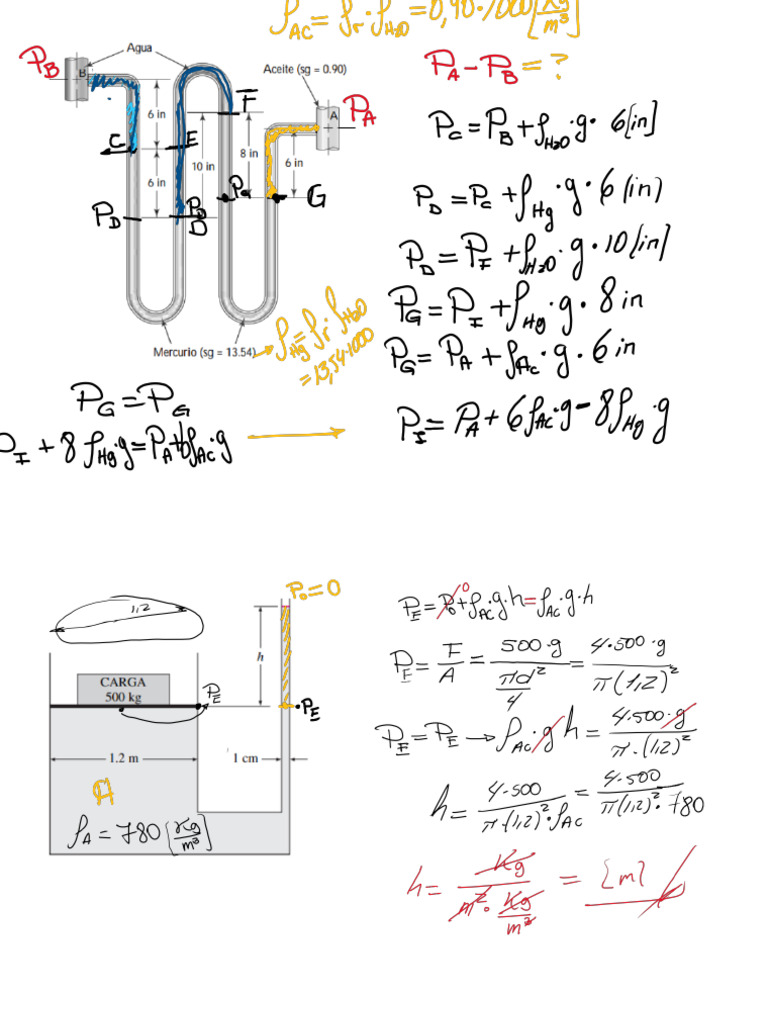 ρAC = ρr · ρH2O = 0,90 · 1000 [Kg/m³]
PB
Agua
B
Aceite (sg = 0.90)
PA
A
PA - PB = ?
6 in
F
C
E
8 in
10 in
6 in
6 in
PG
G
PD
PD
D
Mercurio (sg = 13.54)
ρHg = ρr · ρH2O
= 13,54·1000
PC = PB + ρH2O · g · 6 [in]
PD = PC + ρHg · g · 6 (in)
PD = PI + ρH2O · g · 10 [in]
PG = PI + ρHg · g · 8 in
PG = PA + ρAC · g · 6 in
PG = PG
PI + 8 ρHg · g = PA + 6 ρAC · g
PI = PA + 6 ρAC · g - 8 ρHg · g
1,2
P0 = 0
h
CARGA
500 kg
PE
PE
1.2 m
1 cm
A
ρA = 780 [Kg/m³]
PE = P0 + ρAC · g · h = ρAC · g · h
0
PE = F/A = 500·g / (πd²/4) = 4·500·g / π(1,2)²
PE = PE → ρAC · g h = 4·500·g / π·(1,2)²
h = 4·500 / π·(1,2)²·ρAC = 4·500 / π(1,2)²·780
h = Kg / (m² · Kg/m³) = [m]